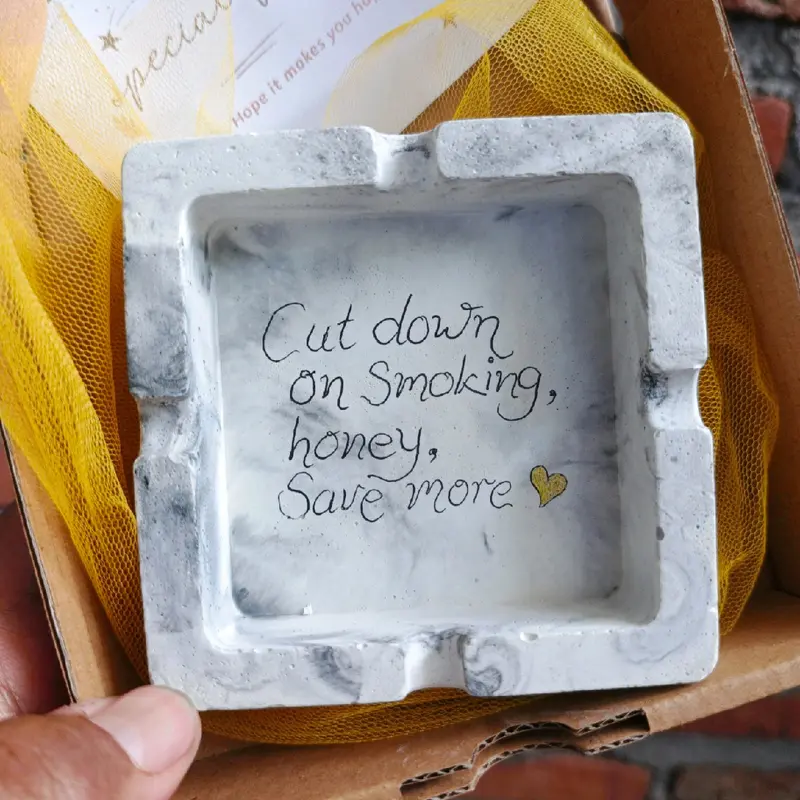 Special
Hope it makes you
Cut down
on Smoking,
honey,
Save more